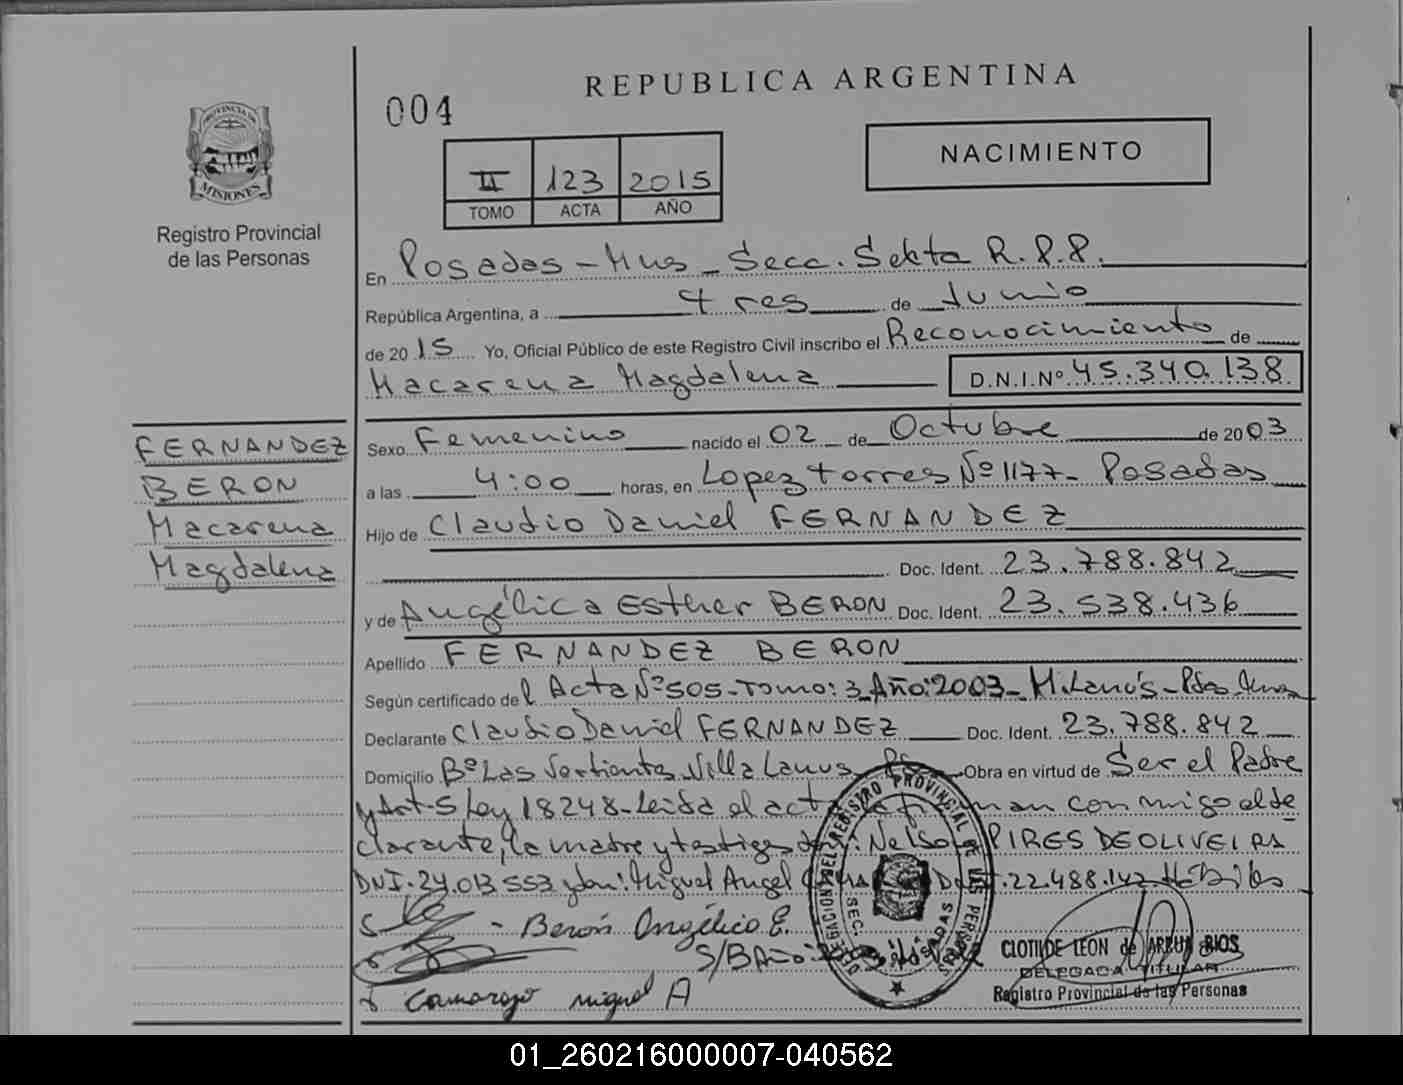 REPUBLICA ARGENTINA
004
NACIMIENTO
II 123 2015
TOMO ACTA AÑO
PROVINCIA DE
MISIONES
Registro Provincial
de las Personas
En Posadas - Mns - Secc. Sexta R.P.P.
República Argentina, a Tres de Junio
de 2015 Yo, Oficial Público de este Registro Civil inscribo el Reconocimiento de
Macarena Magdalena D.N.I.Nº 45.340.138
FERNANDEZ
BERON
Macarena
Magdalena
Sexo Femenino nacido el 02 de Octubre de 2003
a las 4:00 horas, en Lopez torres Nº 1177- Posadas
Hijo de Claudio Daniel FERNANDEZ
Doc. Ident. 23.788.842
y de Angélica Esther BERON Doc. Ident. 23.538.436
Apellido FERNANDEZ BERON
Según certificado de l Acta Nº 505-Tomo: 3 Año: 2003- M. Lanús-
Declarante Claudio Daniel FERNANDEZ Doc. Ident. 23.788.842
Domicilio Bº Las Vertientes Villa Lanus Obra en virtud de Ser el Padre
y Art-5 Ley 18248-Leida el acta man conmigo el de
clarante, la madre y testigos Nelso PIRES DE OLIVEIRA
DNI. 24.013.553 y don: Miguel Angel 22.488.147 Hábiles
- Berón Angélica E.
S/B Año:
Camargo miguel A
DELEGACION DEL REGISTRO PROVINCIAL DE LAS PERSONAS
SEC. POSADAS
CLOTILDE LEON de ARRUA RIOS
DELEGADA TITULAR
Registro Provincial de las Personas
01_260216000007-040562